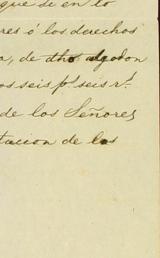 que se en lo
res ó los derechos
, de dho algodon
os seis p.^s seis r.^s
de los Señores
tacion de los